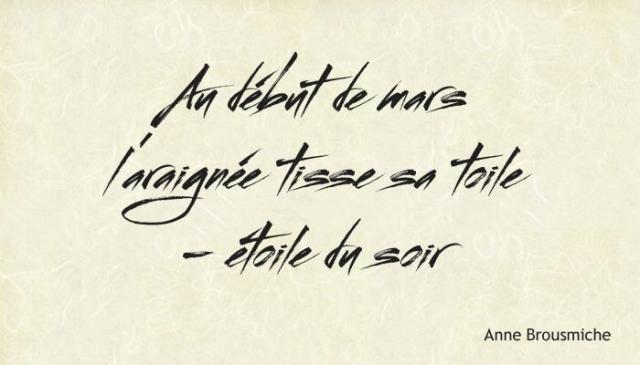 Au début de mars
l'araignée tisse sa toile
- étoile du soir
Anne Brousmiche